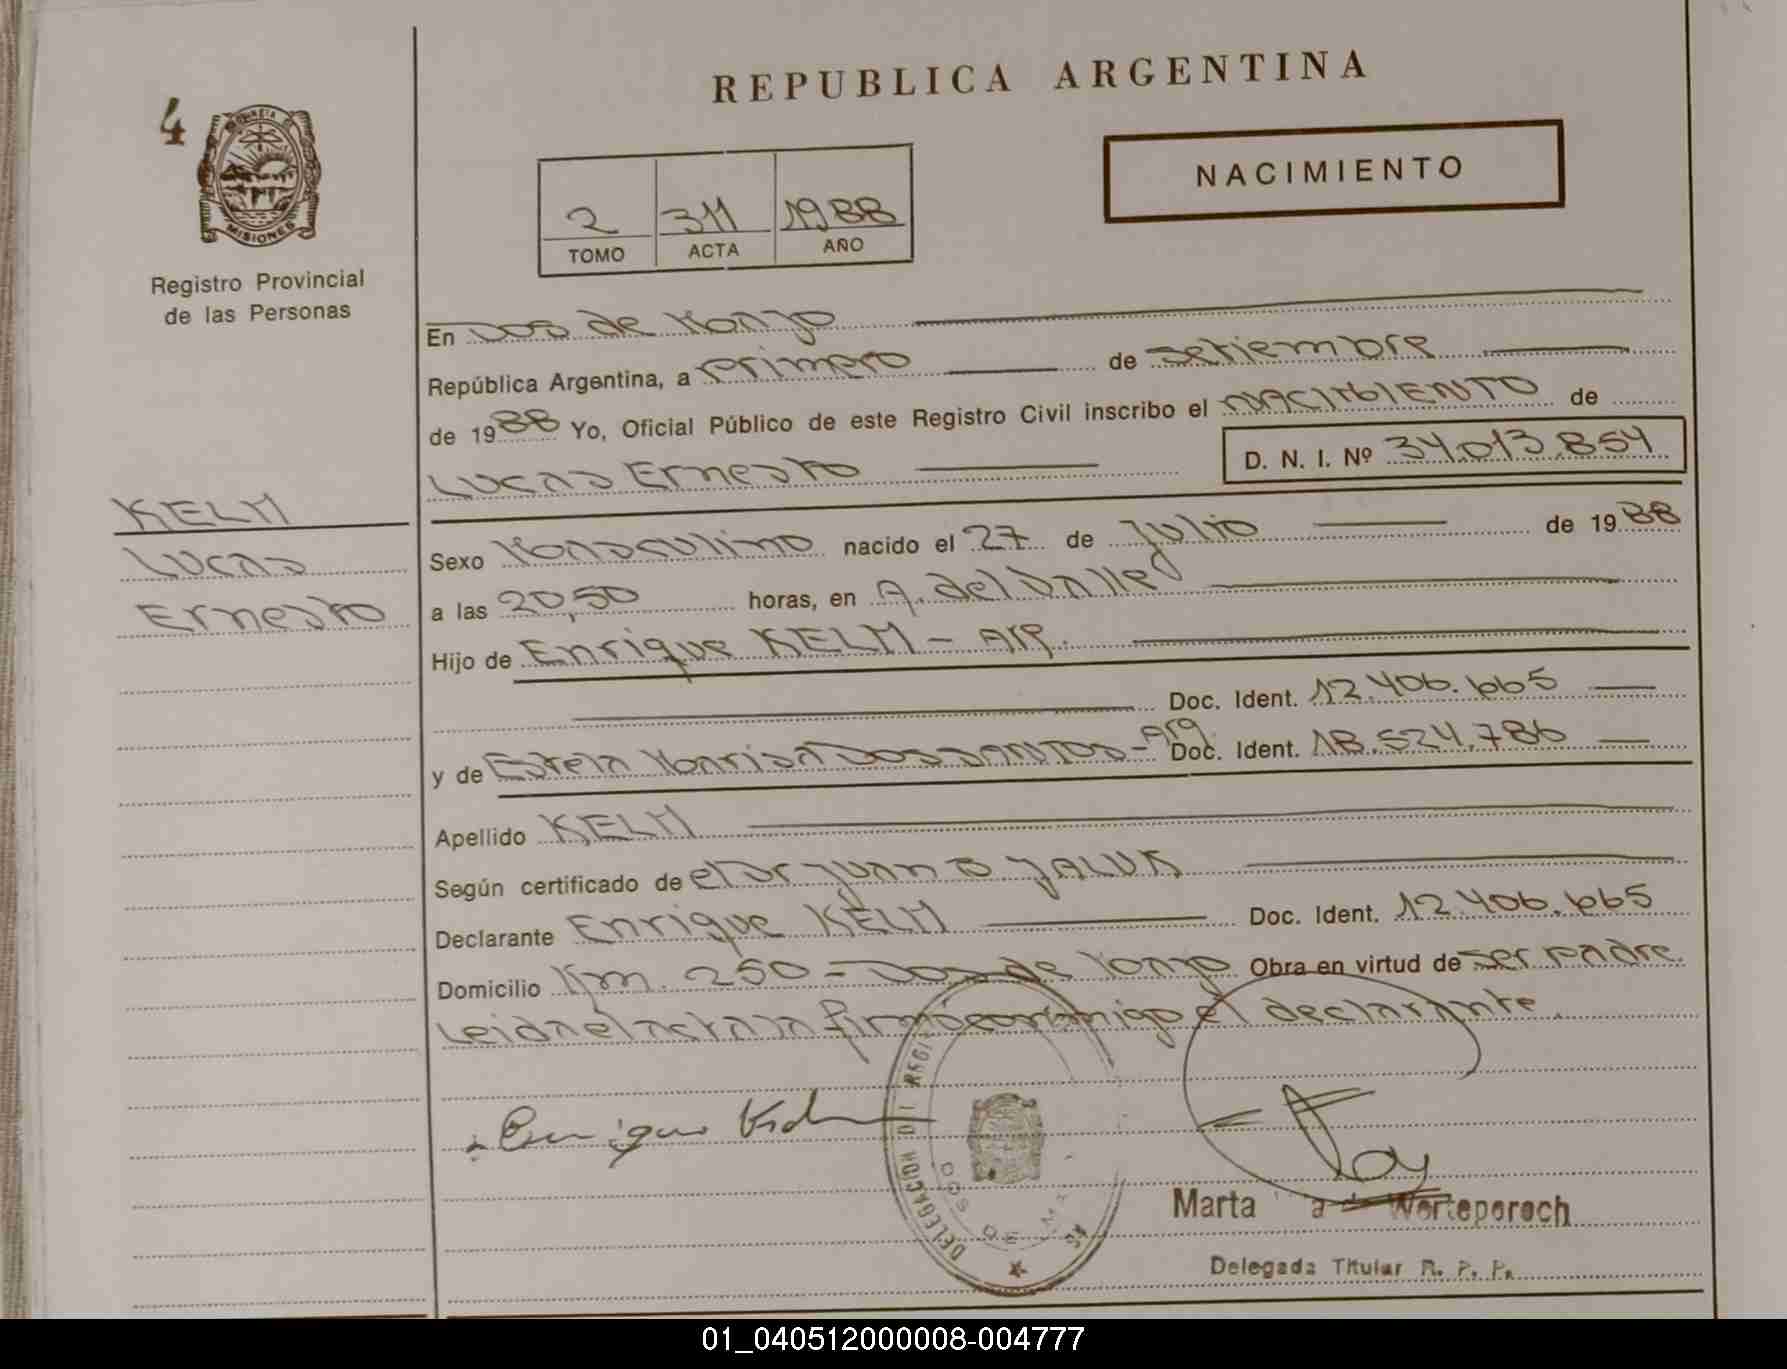 REPUBLICA ARGENTINA
4
MISIONES
Registro Provincial
de las Personas
NACIMIENTO
2 311 1988
TOMO ACTA AÑO
En Dos de Mayo
República Argentina, a primero de setiembre
de 1988 Yo, Oficial Público de este Registro Civil inscribo el NACIMIENTO de
Lucas Ernesto D. N. I. Nº 34.013.854
KELM
Lucas
Ernesto
Sexo Masculino nacido el 27 de Julio de 1988
a las 20,50 horas, en A. del Valle
Hijo de Enrique KELM - Arg.
Doc. Ident. 12.406.665
y de Estela Marisa DOS SANTOS - Arg Doc. Ident. 18.524.786
Apellido KELM
Según certificado de el Dr Juan O JALUK
Declarante Enrique KELM Doc. Ident. 12.406.665
Domicilio Km. 250 - Dos de Mayo Obra en virtud de ser padre.
Leida el acta la firmó conmigo el declarante.
Enrique Kelm
DELEGACION DEL REGI
DOS DE M
Marta a Werteperoch
Delegada Titular R. P. P.
01_040512000008-004777